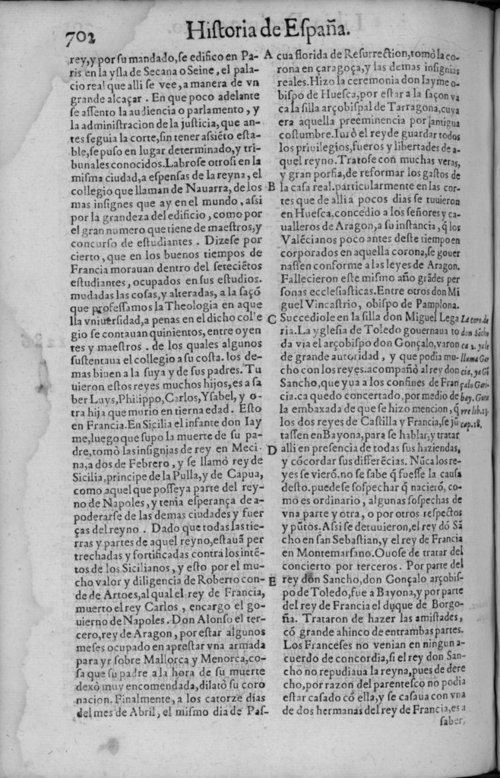 702
Historia de España.
rey, y por su mandado, se edifico en Pa-
ris en la ysla de Secana o Seine, el pala-
cio real que alli se vee, a manera de vn
grande alcaçar. En que poco adelante
se assento la audiencia o parlamento, y
la administracion de la justicia, que an-
tes seguia la corte, sin tener assiéto esta-
ble, se puso en lugar determinado, y tri-
bunales conocidos. Labrose otrosi en la
misma ciudad, a espensas de la reyna, el
collegio que llaman de Nauarra, de los
mas insignes que ay en el mundo, assi
por la grandeza del edificio, como por
el gran numero que tiene de maestros, y
concurso de estudiantes. Dizese por
cierto, que en los buenos tiempos de
Francia morauan dentro del seteciétos
estudiantes, ocupados en sus estudios.
mudadas las cosas, y alteradas, a la saçõ
que professamos la Theologia en aque
lla vniuersidad, a penas en el dicho col egio
se contauan quinientos, entre oyen
tes y maestros. de los quales algunos
sustentaua el collegio a su costa. los de-
mas biuen a la suya y de sus padres. Tu
uieron estos reyes muchos hijos, es a sa
ber Luys, Philippo, Carlos, Ysabel, y o-
tra hija que murio en tierna edad. Esto
en Francia. En Sicilia el infante don Iay
me, luego que supo la muerte de su pa-
dre, tomò las insignias de rey en Meci-
na, a dos de Febrero, y se llamò rey de
Sicilia, principe de la Pulla, y de Capua,
como aquel que posseya parte del rey-
no de Napoles, y tenia esperança de a-
poderarse de las demas ciudades y fuer
ças del reyno. Dado que todas las tie-
rras y partes de aquel reyno, estauã per
trechadas y fortificadas contra los inté-
tos de los Sicilianos, y esto por el mu-
cho valor y diligencia de Roberto con-
de de Artoes, al qual el rey de Francia,
muerto el rey Carlos, encargo el go-
uierno de Napoles. Don Alonso el ter-
cero, rey de Aragon, por estar algunos
meses ocupado en aprestar vna armada
para yr sobre Mallorca y Menorca, co-
sa que su padre a la hora de su muerte
dexò muy encomendada, dilatò su coro
nacion. Finalmente, a los catorze dias
del mes de Abril, el mismo dia de Pas-
A cua florida de Resurrection, tomò la co-
rona en çaragoça, y las demas insignias
reales. Hizo la ceremonia don Iayme o-
bispo de Huesca, por estar a la saçon va
ca la silla arçobispal de Tarragona, cuya
era aquella preeminencia por antigua
costumbre. Iurò el rey de guardar todos
los priuilegios, fueros y libertades de a-
quel reyno. Tratose con muchas veras,
y gran porfia, de reformar los gastos de
B la casa real. particularmente en las cor-
tes que de alli a pocos dias se tuuieron
en Huesca, concedio a los señores y ca-
ualleros de Aragon, a su instancia, q̃ los
Valécianos poco antes deste tiempo en
corporados en aquella corona, se gouer
nassen conforme a las leyes de Aragon.
Fallecieron este mismo año grãdes per
sonas ecclesiasticas. Entre otros don Mi
guel Vincastrio, obispo de Pamplona.
C Succediole en la silla don Miguel Lega
ria. La yglesia de Toledo gouernaua to
da via el arçobispo don Gonçalo, varon
de grande autoridad, y que podia mu-
cho con los reyes. acompañò al rey don
Sancho, que yua a los confines de Fran
cia. ca quedo concertado, por medio de
la embaxada de que se hizo mencion, q̃
los dos reyes de Castilla y Francia, se jũ
tassen en Bayona, para se hablar, y tratar
D alli en presencia de todas sus haziendas,
y cõcordar sus differēcias. Nũca los re-
yes se vierõ. no se sabe q̃ fuesse la causa
desto. puedese sospechar q̃ naciero, co-
mo es ordinario, algunas sospechas de
vna parte y otra, o por otros respectos
y pũtos. Assi se detuuieron, el rey dõ Sã
cho en san Sebastian, y el rey de Francia
en Montemarsano. Ouose de tratar del
concierto por terceros. Por parte del
E rey don Sancho, don Gonçalo arçobis-
po de Toledo, fue a Bayona, y por parte
del rey de Francia el duque de Borgo-
ña. Trataron de hazer las amistades,
cõ grande ahinco de entrambas partes.
Los Franceses no venian en ningun a-
cuerdo de concordia, si el rey don San-
cho no repudiaua la reyna, pues de dere
cho, por razon del parentesco no podia
estar casado cõ ella, y se casaua con vna
de dos hermanas del rey de Francia, es a
saber,